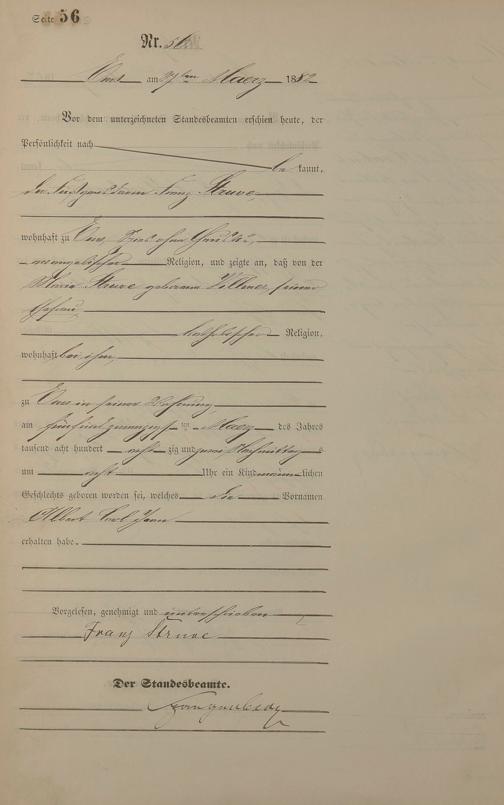 Seite 56
Nr. 56
Ems am 27ten Maerz 1882
Vor dem unterzeichneten Standesbeamten erschien heute, der
Persönlichkeit nach
be kannt,
der Franz Struve
wohnhaft zu Ems,
evangelischer Religion, und zeigte an, daß von der
Maria Struve geborenen seiner
Ehefrau,
katholischer Religion,
wohnhaft bei ihm,
zu Ems in seiner Wohnung,
am fünfundzwanzigsten Maerz des Jahres
tausend acht hundert achtzig und zwei Nachmittags
um acht Uhr ein Kind männlichen
Geschlechts geboren worden sei, welches die Vornamen
Albert Carl
erhalten habe.
Vorgelesen, genehmigt und unterschrieben
Franz Struve
Der Standesbeamte.